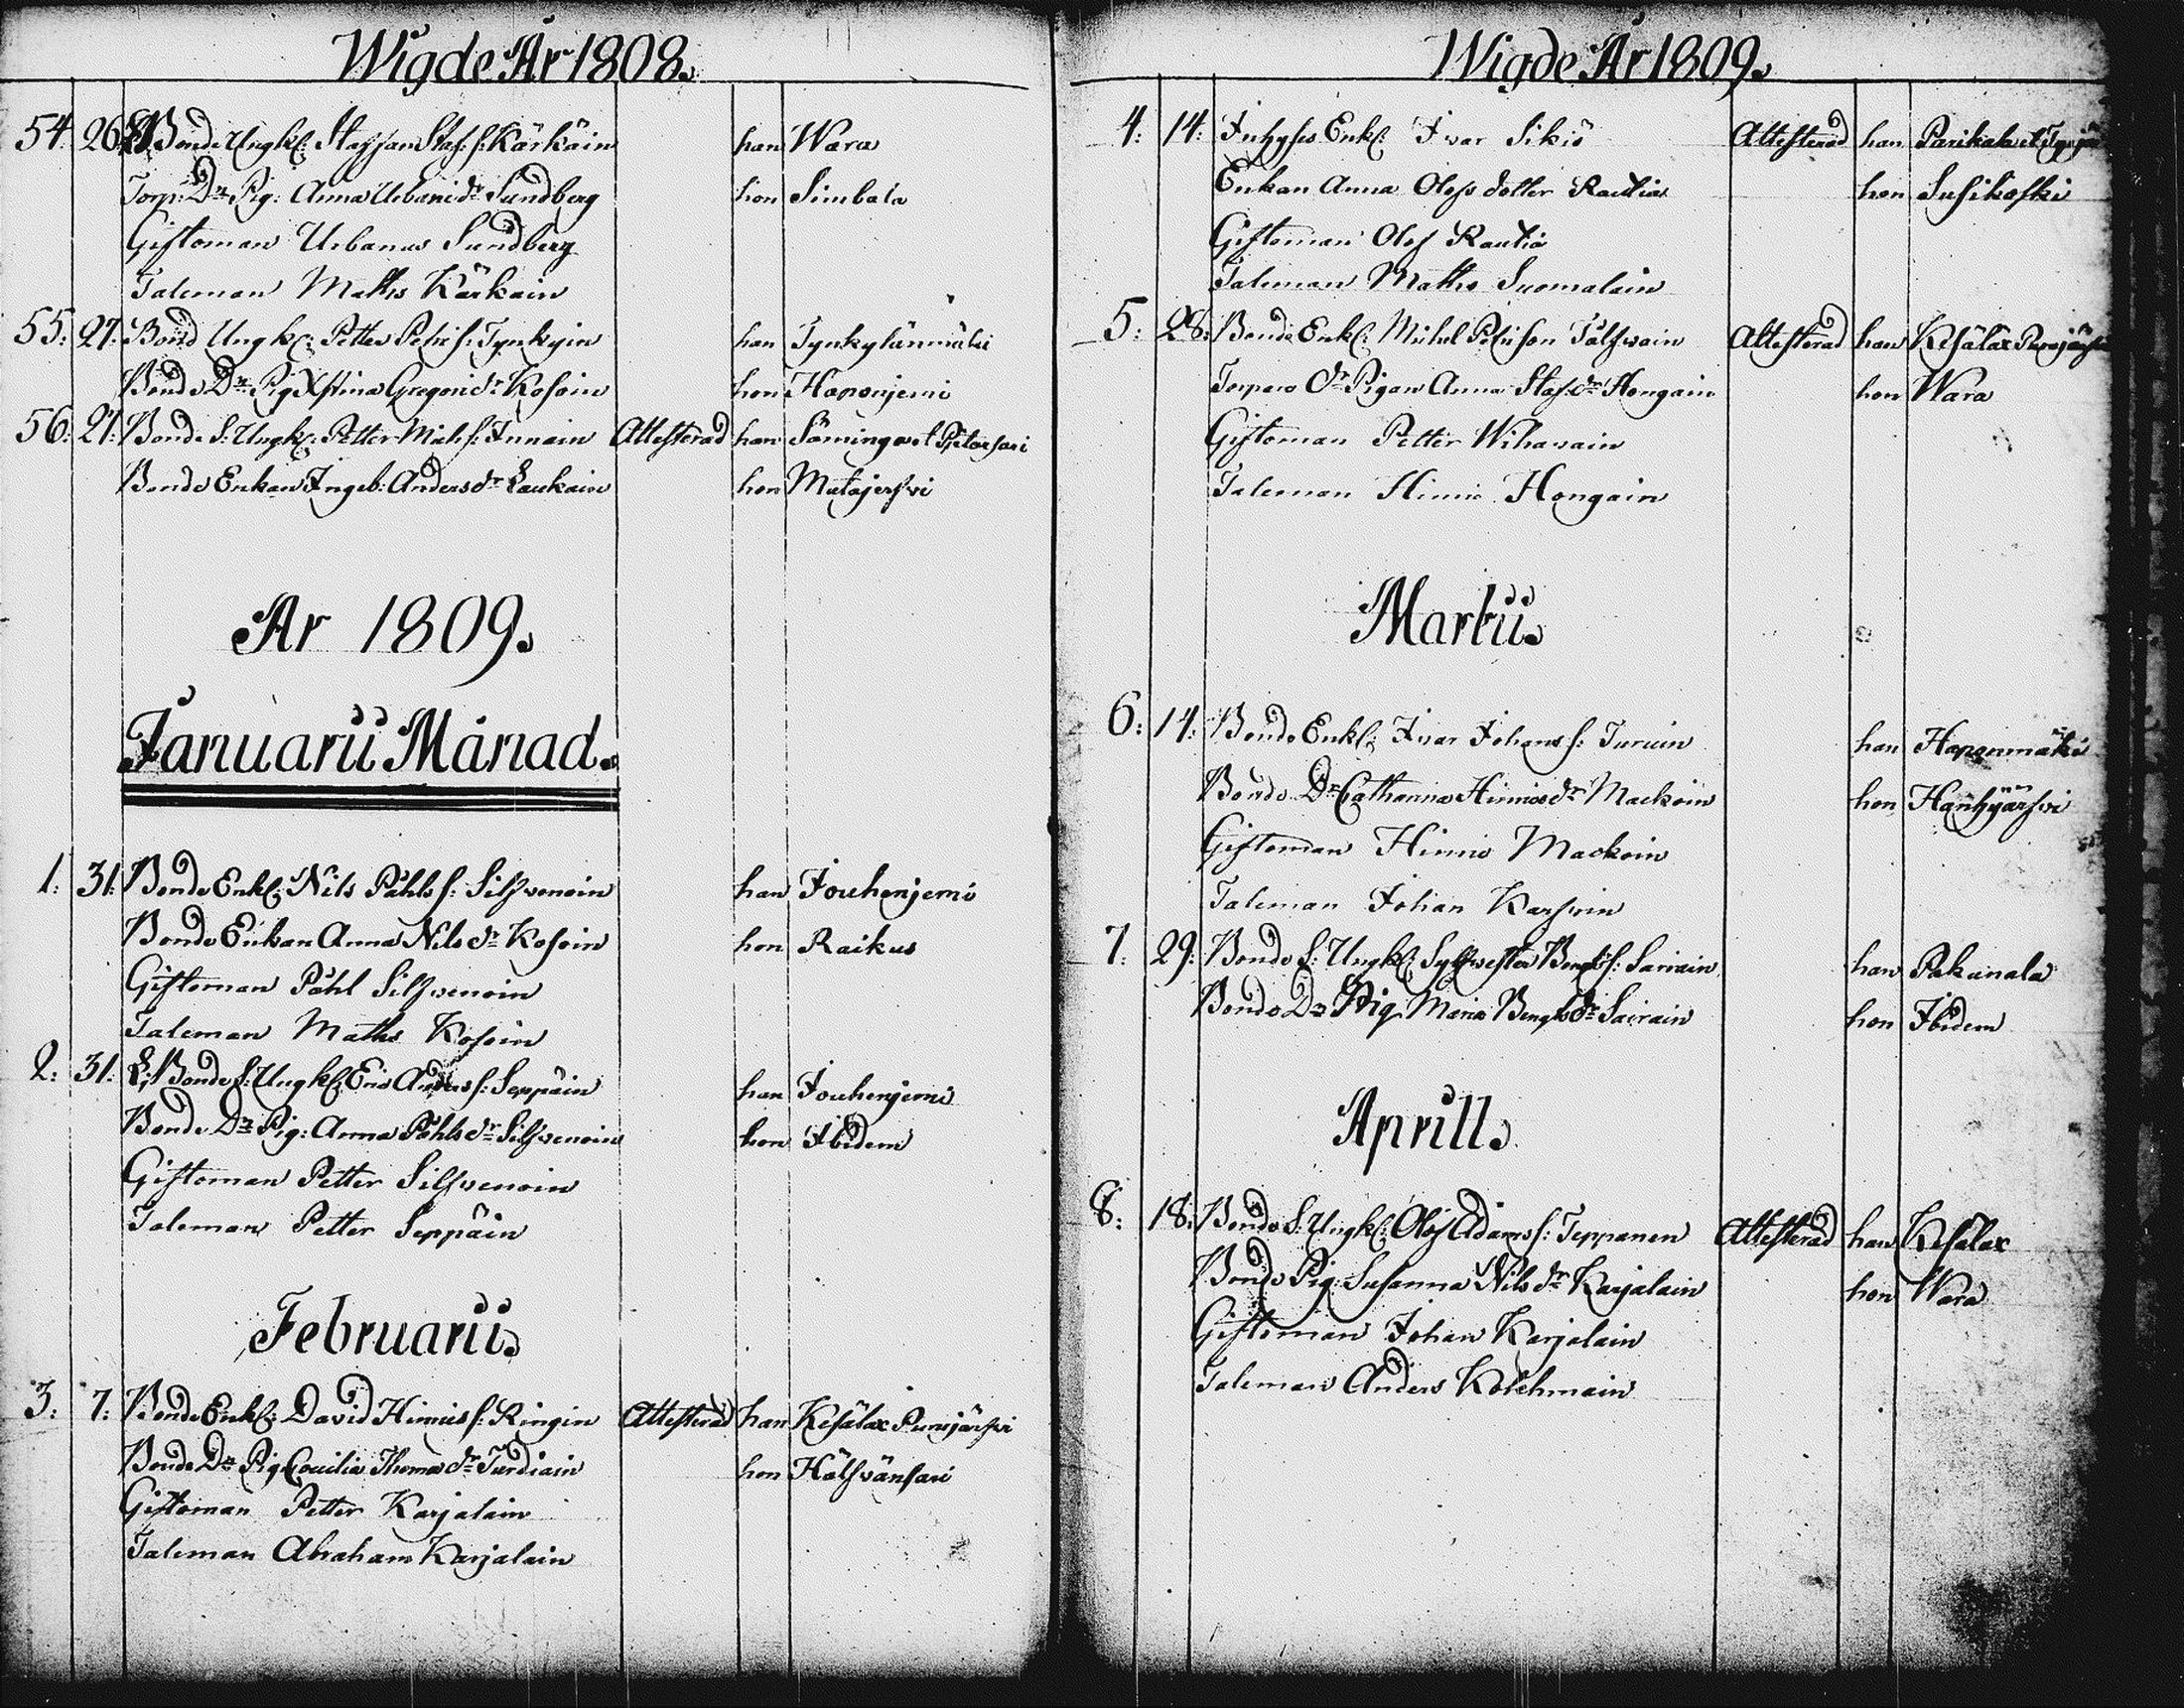 Wigde År 1808.
54. 26. Bonde Ungk: Staffan Staf: s: Kärkäin han Wara
Torp: Dr Pig: Anna Urbani dr Sundberg hon Simbala
Giftoman Urbanus Sundberg
Taleman Maths Kärkäin
55: 27: Bond Ungk: Petter Petri s: Tynkyin han Tynkylänmäki
Bonde Dr Pig Xstina Gregori dr Kosoin hon Haponjemi
56: 27: Bonde S: Ungk: Petter Mich s: Innain Attesterad han Säminge et Pitersari
Bonde Enkan Ingeb: Anders dr Laukain hon Mutajerfvi
År 1809.
Januarii Månad.
1: 31: Bonde Enkl: Nils Påhls s: Silfvenoin han Jouhenjemi
Bonde Enkan Anna Nils dr Kosoin hon Raikus
Giftoman Påhl Silfvenoin
Taleman Maths Kosoin
2: 31: Bonde S: Ungk: Eric Anders s: Seppäin han Jouhenjemi
Bonde Dr Pig: Anna Påhls dr Silfvenoin hon Ibidem
Giftoman Petter Silfvenoin
Taleman Petter Seppäin
Februarii.
3: 7: Bonde Enkl: David Hinrics s: Ringin Attesterad han Kesälax Purujärfvi
Bonde Dr Pig Cecilia Thomæ dr Turdiain hon Hälfvänsari
Giftoman Petter Karjalain
Taleman Abraham Karjalain
Wigde År 1809.
4: 14: Inhyses Enkl: Ivar Sikiö Attesterad han Parikala et
Enkan Anna Olofs dotter Rautia hon Susikoski
Giftoman Olof Rautia
Taleman Maths Suomalain
5: 28: Bonde Enkl: Michel Petri son Talfvain Attesterad han Kesälax Purujärfvi
Torpare dr Pigan Anna Staf: dr Hongain hon Wara
Giftoman Petter Wihavain
Taleman Hinric Hongain
Martii.
6: 14: Bonde Enkl: Ivar Johans s: Turuin han Haponmäki
Bonde Dr Catharina Hinrics dr Mackoin hon Hanhijärfvi
Giftoman Hinric Mackoin
Taleman Johan Karfvin
7: 29: Bonde S: Ungk: Sylfvester Bengts s: Sairain han Pakunala
Bonde Dr Pig Maria Bengts dr Sairain hon Ibidem
Aprill.
8: 18: Bonde S: Ungk: Olof Adams s: Teppanen Attesterad han Kesälax
Bonde Pig: Susanna Nils dr Karjalain hon Wara
Giftoman Johan Karjalain
Taleman Anders Kolehmain